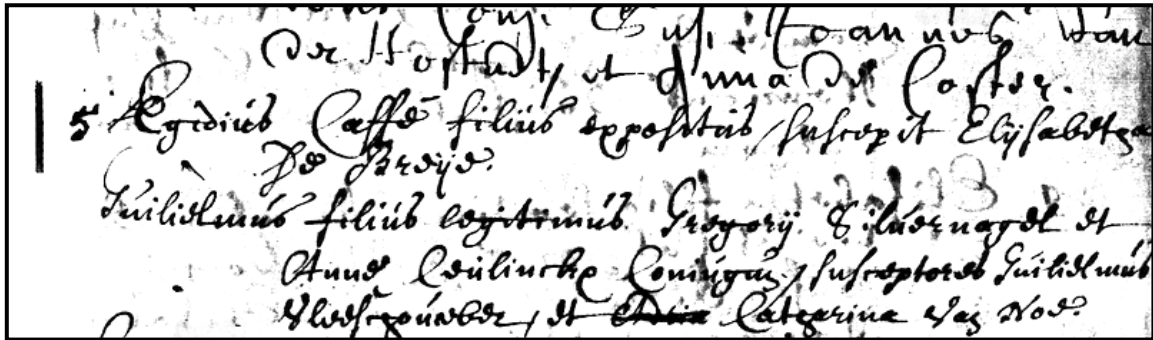 Conj. Susc. Joannes Van
der Hofstadt, et Anna De Coster.
5 Ægidius Caffé filius expositus, suscepit Elysabetha
De Breÿe.
Guilielmus filius legitimus Gregorij Silvernagel et
Annæ Ceulinckx Coniugum, susceptores Guilielmus
et Catharina Van Noe.